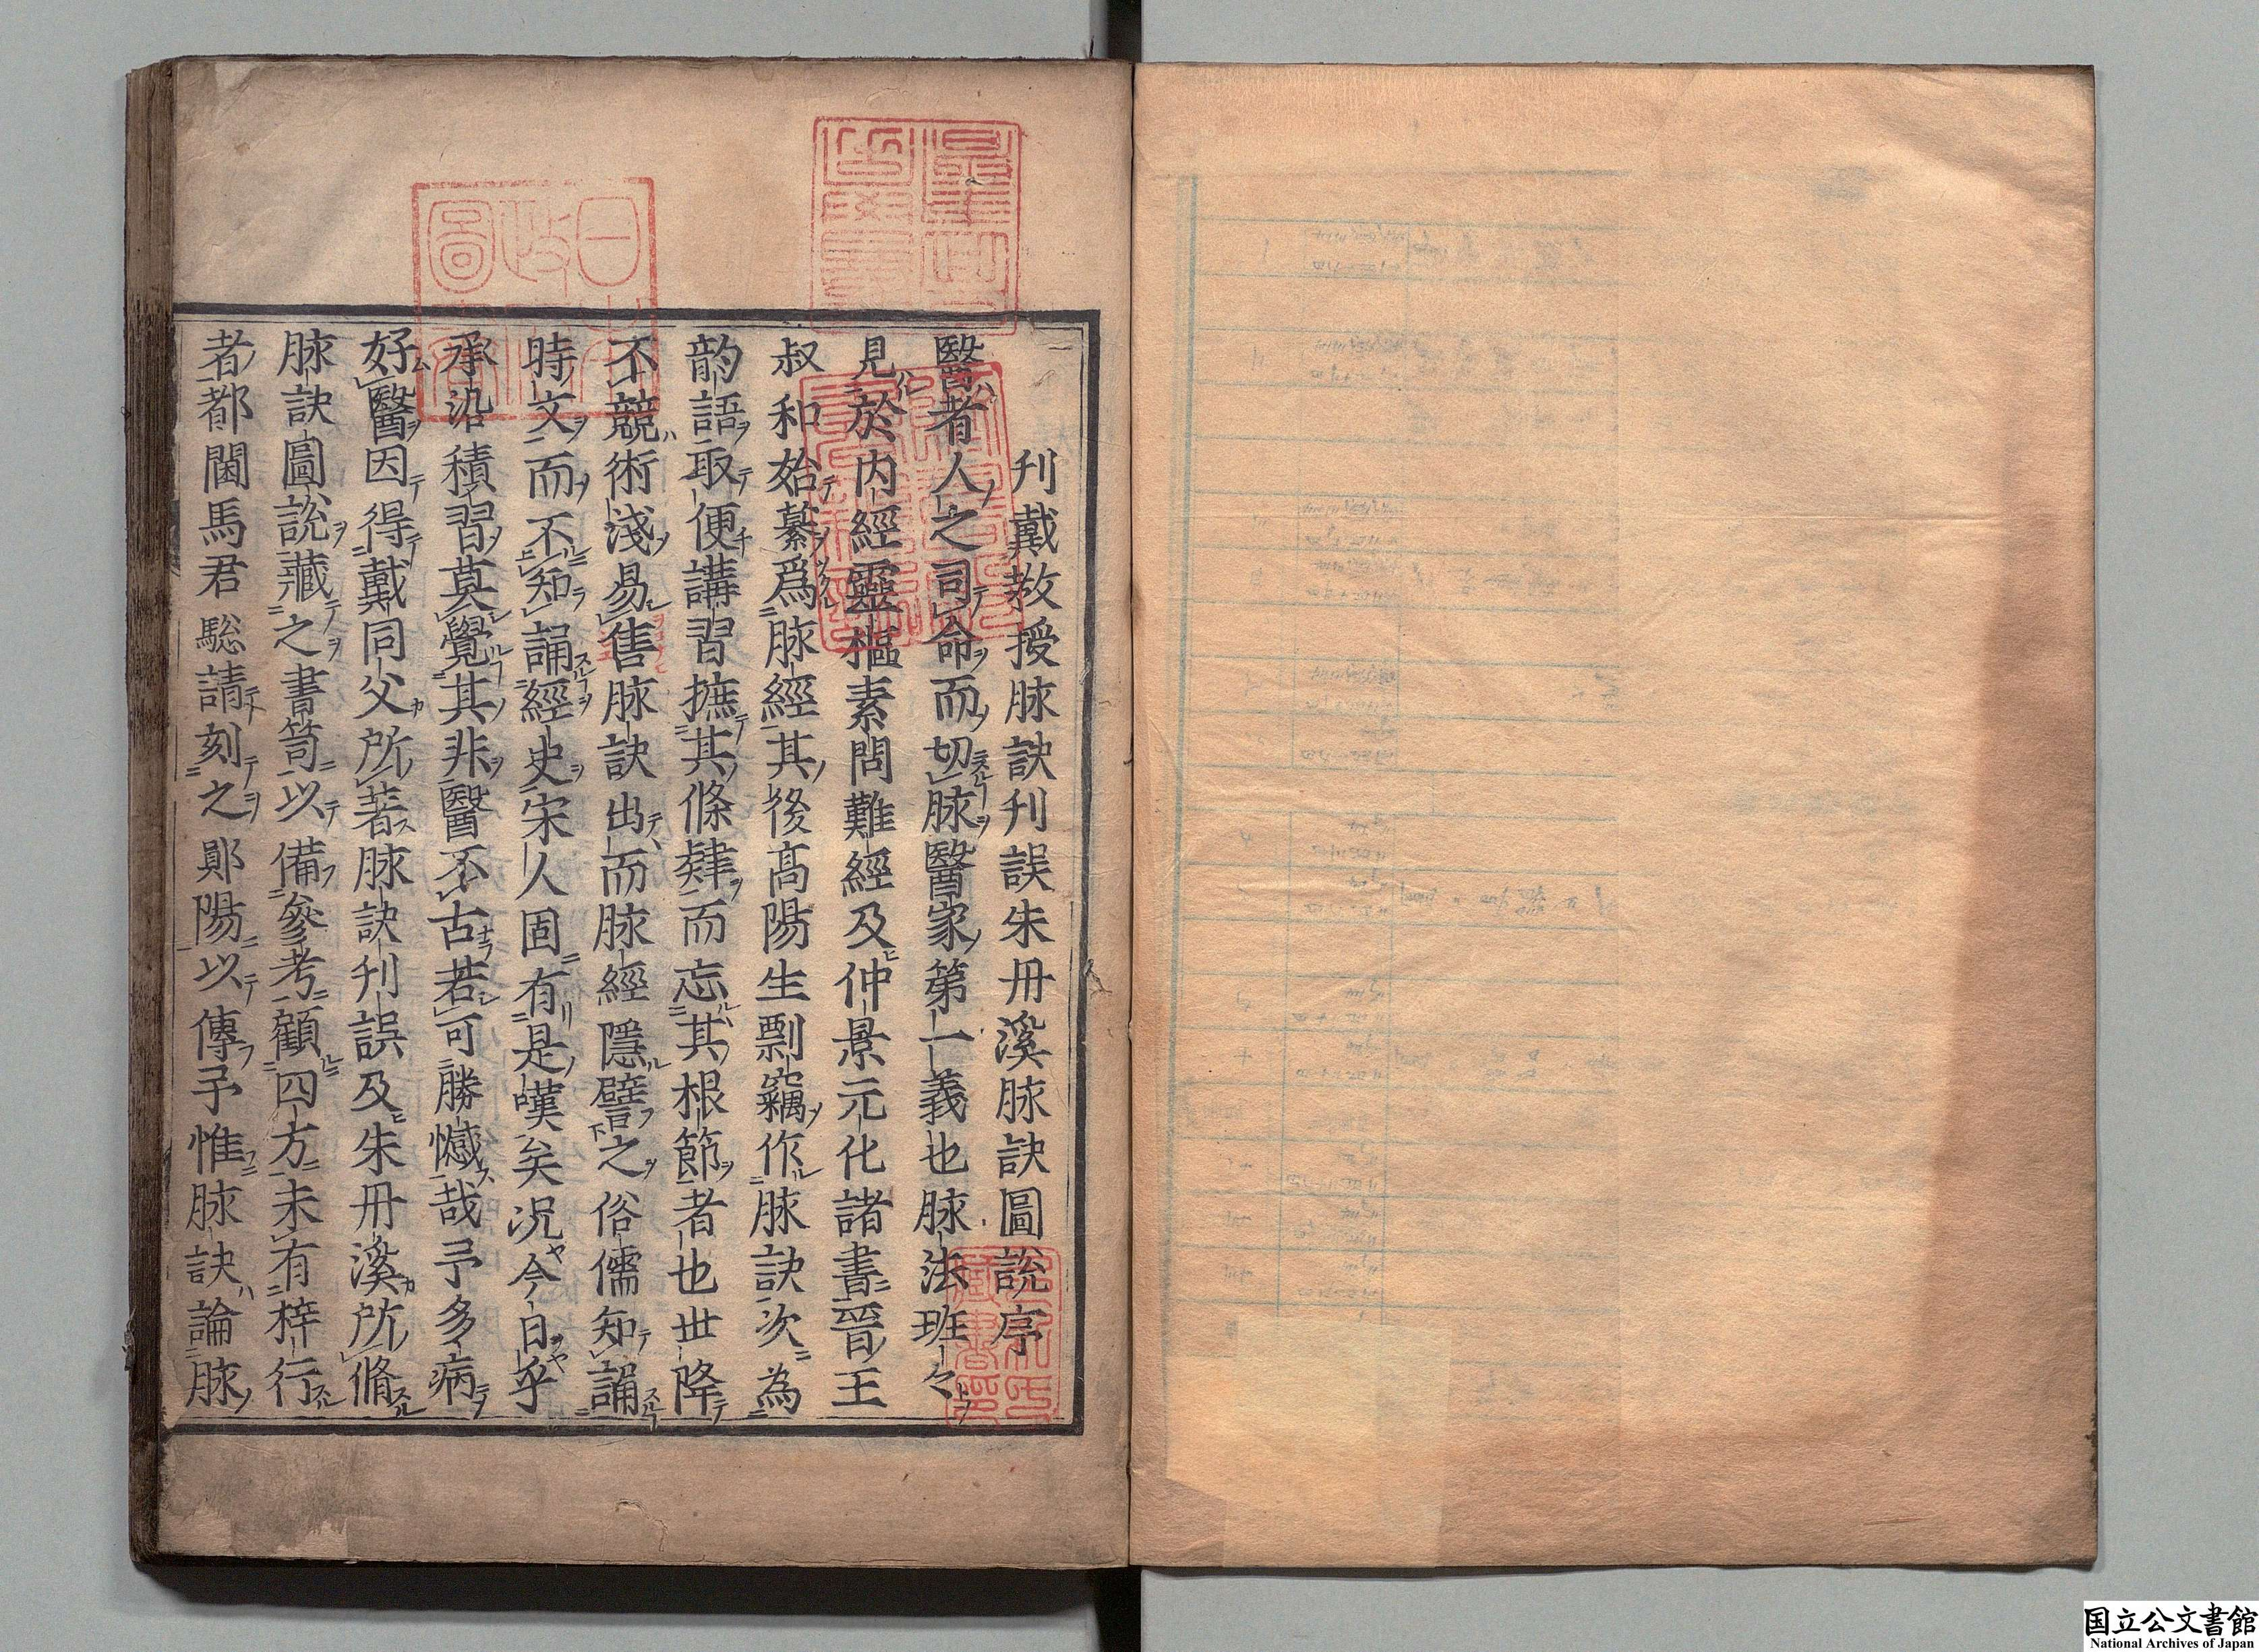 刋戴教授脉訣刋誤朱丹溪脉訣圖說序
醫者人之司命而切脉醫家第一義也脉法班々
見於内經靈樞素問難經及仲景元化諸書晉王
叔和始纂爲脉經其後高陽生剽竊作脉訣次為
韵語取便講習摭其條肄而忘其根節者也世降
不競術淺易售脉訣出而脉經隱譬之俗儒知誦
時文而不知誦經史宋人固有是嘆矣况今日乎
承沿積習莫覺其非醫不古若可勝憾哉予多病
好醫因得戴同父所著脉訣刋誤及朱丹溪所脩
脉訣圖說藏之書笥以備參考顧四方未有梓行
者都閫馬君驄請刻之鄖陽以傳予惟脉訣論脉
国立公文書館
National Archives of Japan